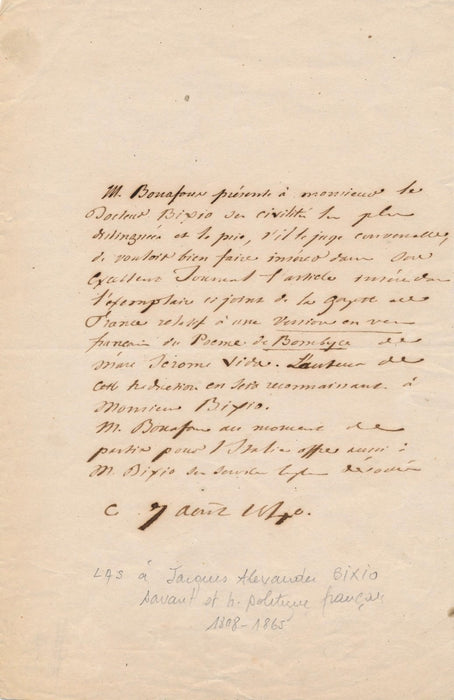 M. Bonafous présente à monsieur le
Docteur Bixio ses civilités les plus
distinguées et le prie, s'il le juge convenable,
de vouloir bien faire insérer dans son
excellent Journal l'article inséré dans
l'exemplaire ci joint de la gazette de
France relatif à une version en vers
français du Poeme de Bombyce de
Marc Jérome Vida. L'auteur de
cette traduction en sera reconnaissant à
Monsieur Bixio.
M. Bonafous au moment de
partir pour l'Italie offre aussi à
M. Bixio ses services les plus dévoués
C 7 août 1840.
LAS à Jacques Alexandre BIXIO
savant et h. politique français
1808-1865